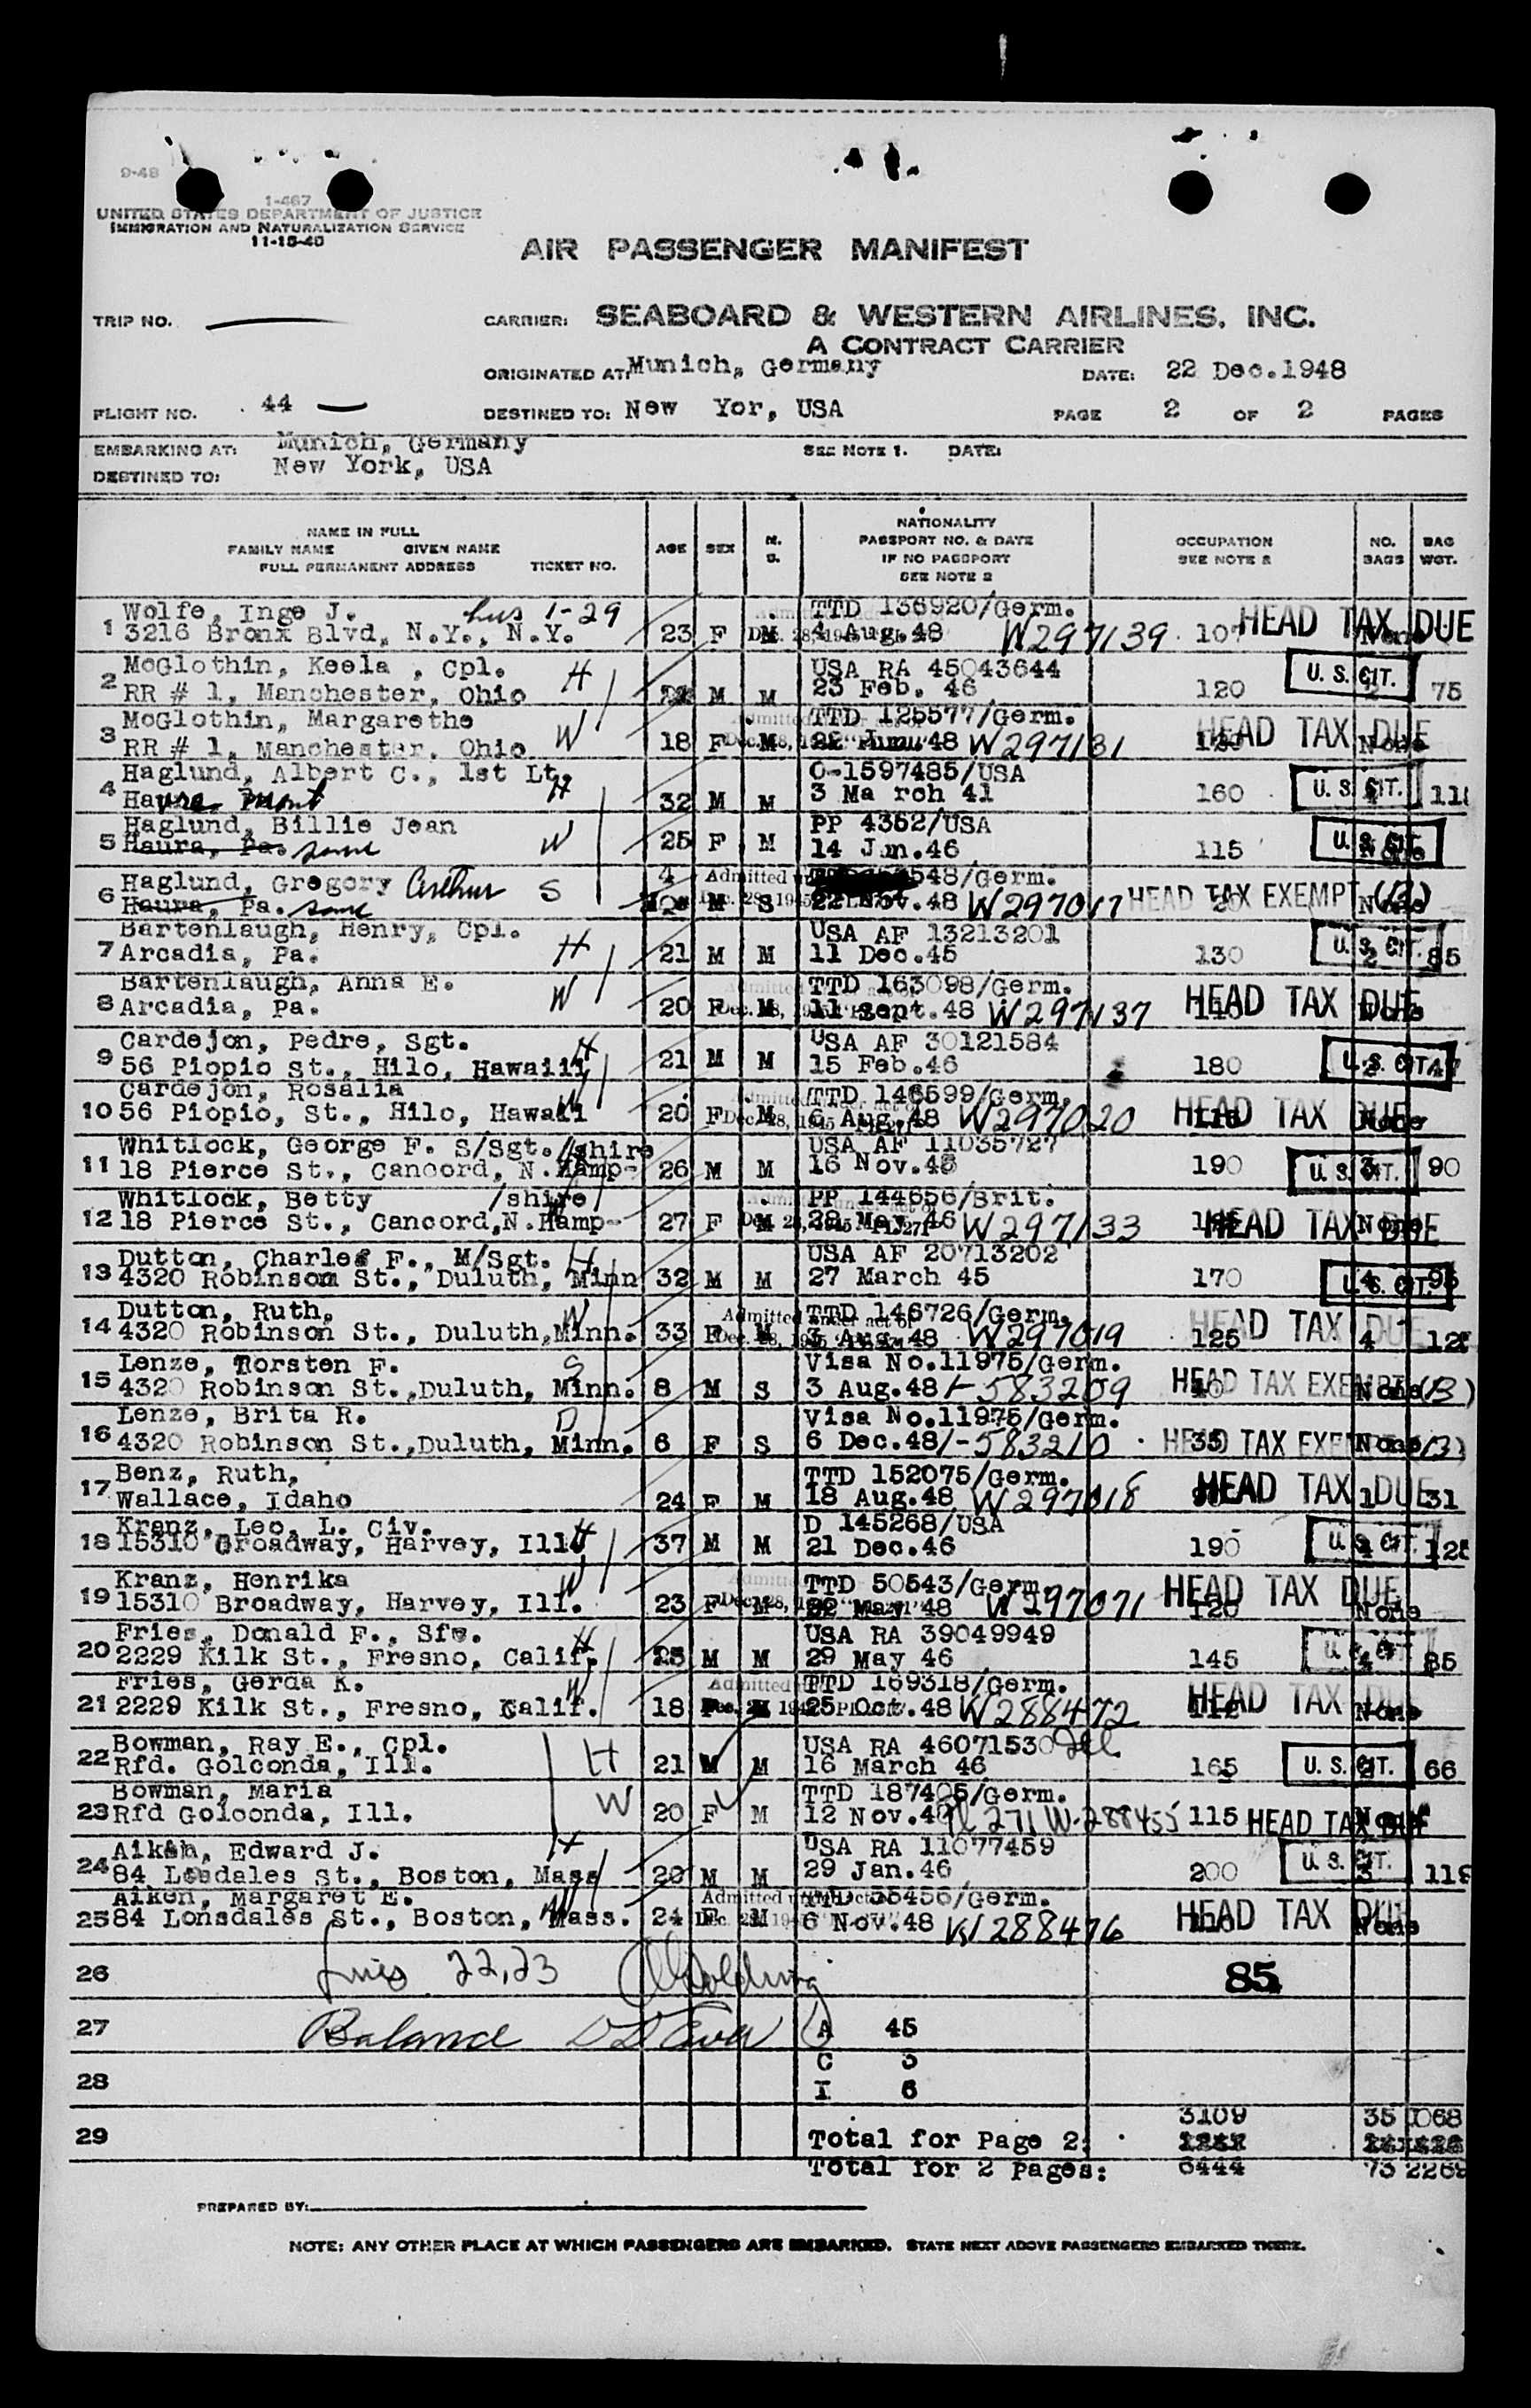 9-48
1-467
UNITED STATES DEPARTMENT OF JUSTICE
IMMIGRATION AND NATURALIZATION SERVICE
11-15-40
AIR PASSENGER MANIFEST
TRIP NO. CARRIER: SEABOARD & WESTERN AIRLINES, INC.
A CONTRACT CARRIER
ORIGINATED AT: Munich, Germany DATE: 22 Dec.1948
FLIGHT NO. 44 DESTINED TO: New Yor, USA PAGE 2 OF 2 PAGES
EMBARKING AT: Munich, Germany SEE NOTE 1. DATE:
DESTINED TO: New York, USA
NAME IN FULL
FAMILY NAME GIVEN NAME
FULL PERMANENT ADDRESS TICKET NO.
AGE SEX M. S.
NATIONALITY
PASSPORT NO. & DATE
IF NO PASSPORT
SEE NOTE 2
OCCUPATION
SEE NOTE 2
NO. BAGS BAG WGT.
1 Wolfe, Inge J. hus 1-29 TTD 136920/Germ. HEAD TAX DUE
3216 Bronx Blvd, N.Y., N.Y. 23 F M 4 Aug.48 W297139 107 None
2 McGlothin, Keela , Cpl. H USA RA 45043644 U. S. CIT.
RR # 1, Manchester, Ohio M M 23 Feb. 46 120 2 75
3 McGlothin, Margarethe W TTD 125577/Germ. HEAD TAX DUE
RR # 1, Manchester, Ohio 18 F M 22 48 W297131 None
4 Haglund, Albert C., 1st Lt. H O-1597485/USA U. S. CIT.
Havre Mont 32 M M 3 Ma rch 41 160
5 Haglund, Billie Jean W PP 4352/USA U. S. CIT.
Haura, Pa. same 25 F M 14 Jan.46 115 None
6 Haglund, Gregory Arthur S 4 Admitted 548/Germ. HEAD TAX EXEMPT
Haura, Pa. same M S 22 Nov.48 W297017 None
7 Bartenlaugh, Henry, Cpl. H USA AF 13213201 U. S. CIT.
Arcadia, Pa. 21 M M 11 Dec.45 130 2 85
8 Bartenlaugh, Anna E. W TTD 163098/Germ. HEAD TAX DUE
Arcadia, Pa. 20 F M 11 Sept.48 W297137 None
9 Cardejon, Pedre, Sgt. H USA AF 30121584 U. S. CIT.
56 Piopio St., Hilo, Hawaiii 21 M M 15 Feb.46 180
10 Cardejon, Rosalia W TTD 146599/Germ. HEAD TAX DUE
56 Piopio, St., Hilo, Hawaii 20 F M 6 Aug.48 W297020 None
11 Whitlock, George F. S/Sgt. /shire USA AF 11035727 U. S. CIT.
18 Pierce St., Cancord, N.Hamp- 26 M M 16 Nov.45 190 3 90
12 Whitlock, Betty /shire PP 144656/Brit. HEAD TAX DUE
18 Pierce St., Cancord,N.Hamp- 27 F M 28 May 46 W297133 None
13 Dutton, Charles F., M/Sgt. H USA AF 20713202 U. S. CIT.
4320 Robinson St., Duluth, Minn 32 M M 27 March 45 170 4 95
14 Dutton, Ruth, W Admitted under act of TTD 146726/Germ. HEAD TAX DUE
4320 Robinson St., Duluth,Minn. 33 F M 3 Aug.48 W297019 125 4
15 Lenze, Torsten F. S Visa No.11975/Germ. HEAD TAX EXEMPT
4320 Robinson St.,Duluth, Minn. 8 M S 3 Aug.48 1-583209 40 None (13)
16 Lenze, Brita R. D Visa No.11976/Germ. HEAD TAX EXEMPT
4320 Robinson St.,Duluth, Minn. 6 F S 6 Dec.48 1-583210 35 None (13)
17 Benz, Ruth, TTD 152075/Germ. HEAD TAX DUE
Wallace, Idaho 24 F M 18 Aug.48 W297018 1 31
18 Kranz, Leo, L. Civ. H D 145268/USA U. S. CIT.
15310 Broadway, Harvey, Ill. 37 M M 21 Dec.46 190
19 Kranz, Henrika W TTD 50543/Germ. HEAD TAX DUE
15310 Broadway, Harvey, Ill. 23 F M May 48 W297071 120 None
20 Fries, Donald F., Sfc. H USA RA 39049949 U. S. CIT.
2229 Kilk St., Fresno, Calif. 25 M M 29 May 46 145 4 85
21 Fries, Gerda K. W Admitted TTD 169318/Germ. HEAD TAX DUE
2229 Kilk St., Fresno, Calif. 18 F M 25 Oct.48 W288472 None
22 Bowman, Ray E., Cpl. H USA RA 46071530
Rfd. Golconda, Ill. 21 M M 16 March 46 165 U. S. CIT. 66
23 Bowman, Maria W TTD 187405/Germ.
Rfd Golconda, Ill. 20 F M 12 Nov.48 Pl 271 W-288455 115 HEAD TAX DUE None
24 Aiken, Edward J. H USA RA 11077459 U. S. CIT.
84 Losdales St., Boston, Mass M M 29 Jan.46 200 3
25 Aiken, Margaret E. W Admitted under act of TTD 35456/Germ. HEAD TAX DUE
84 Lonsdales St., Boston, Mass. 24 F M 6 Nov.48 W288476 None
26 Lines 22,23 Golding 85
27 Balance A 45
C 3
28 I 6
3109 35 1068
29 Total for Page 2:
Total for 2 Pages: 6444 73
PREPARED BY:
NOTE: ANY OTHER PLACE AT WHICH PASSENGERS ARE EMBARKED. STATE NEXT ABOVE PASSENGERS EMBARKED THERE.